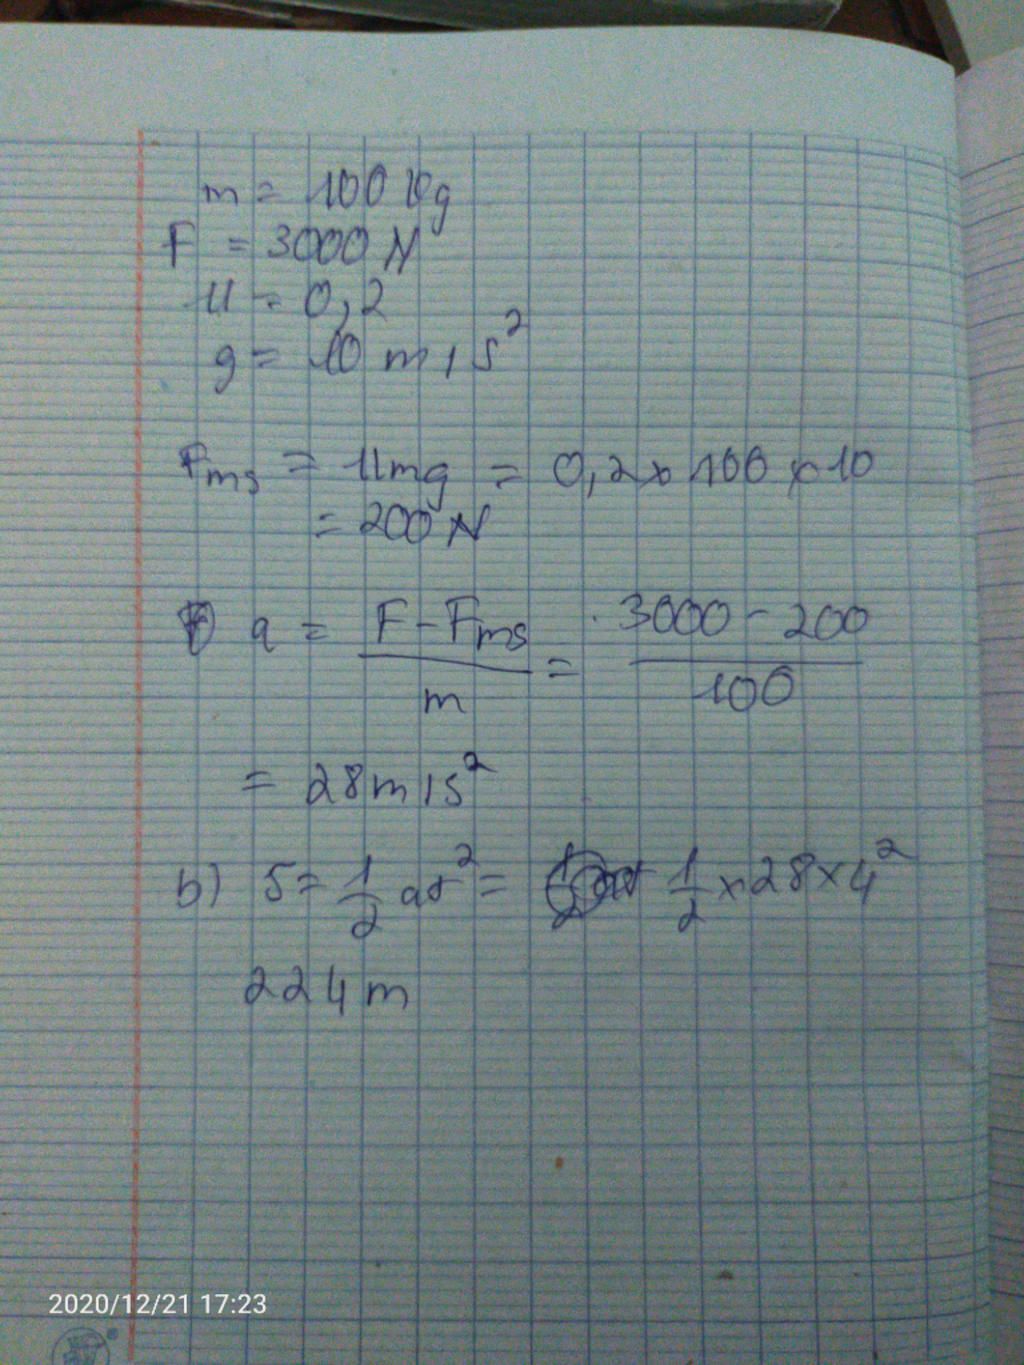 m = 100 kg
F = 3000 N
μ = 0,2
g = 10 m/s²
Fms = μmg = 0,2 x 100 x 10
= 200 N
a = F - Fms / m = 3000 - 200 / 100
= 28 m/s²
b) S = 1/2 at² = 1/2 x 28 x 4²
224 m
2020/12/21 17:23